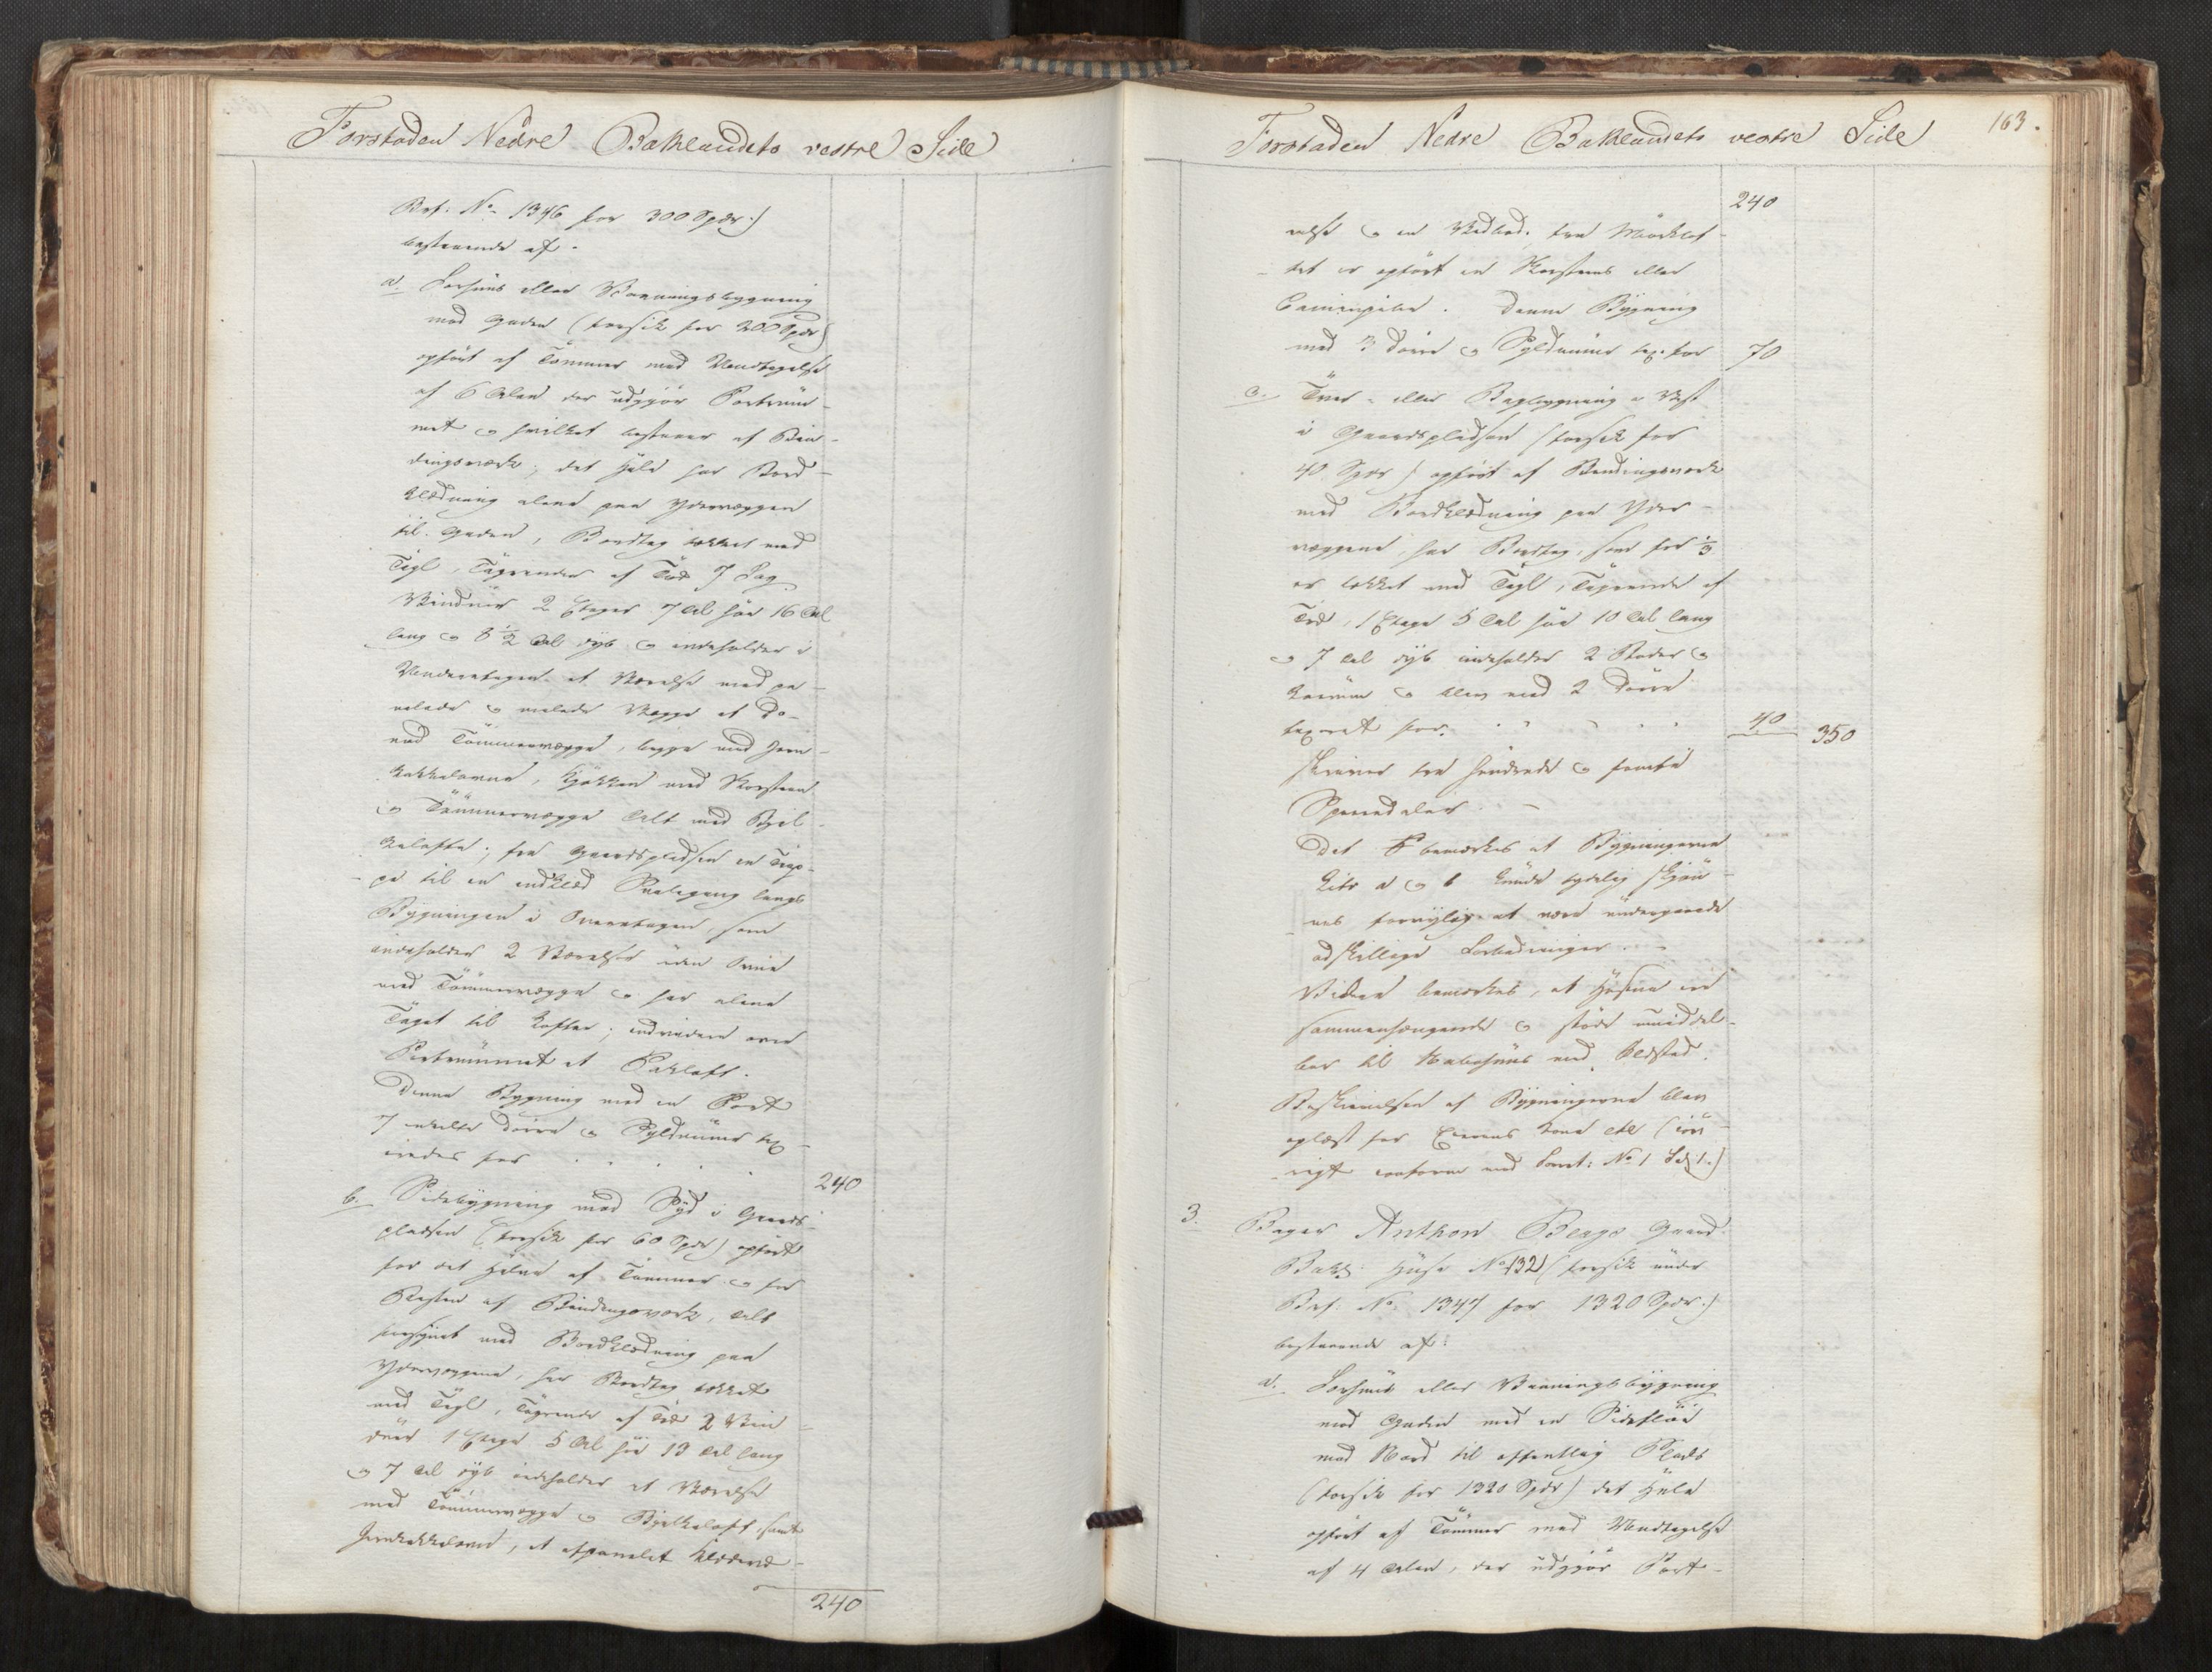 Forstaden Nedre Baklandets vestre Side
Brf: No 1346 for 300 Spdr.)
bestaaende af.
a. Forhuus eller Vaaningsbygning
mod Gaden (forsik for 200 Spdr)
opført af Tømmer med Undtagelse
af 6 Alen der udgjør Portrum-
met og hvilket bestaaer af Bin-
dingsværk; det Hele har Bord-
klædning alene paa Ydervæggen
til Gaden, Bordtag tækket med
Tegl, Tagrender af Træ 7 Fag
Vinduer 2 Etager 7 Al høi 16 Al
lang og 8 1/2 Al dyb og indeholder i
Underetagen et Værelse med pa-
nelede og malede Vægge et Do-
med Tømmervægge, begge med Jern-
kakkelovne, Kjøkken med Skorsteen
og Tømmervægge Alt med Bjel-
kelofte; fra Gaardspladsen en Trap-
pe til en indklæd Svalegang langs
Bygningen i Overetagen, som
indeholder 2 Værelser uden Ovne
med Tømmervægge og har alene
Taget til Lofter; endvidere over
Portrummet et Pakloft.
Denne Bygning med en Port
7 enkelte Dørre og Fyldmuur tax-
eredes for . . . . . 240
b. Sidebygning mod Syd i Gaards-
pladsen (forsik for 60 Spdr) opført
for det Halve af Tømmer og for
Resten af Bindingsværk, Alt
forsynet med Bordklædning paa
Ydervæggene, har Bordtag tækket
med Tegl, Tagrende af Træ 2 Vin-
duer 1 Etage 5 Al høi 13 Al lang
og 7 Al dyb indeholder et Værelse
med Tømmervægge og Bjelkeloft samt
Jernkakkelovn, et afpanelet
240
163.
Forstaden Nedre Baklandets vestre Side
240
relse og en Vedbod. Fra Mørklof-
tet er opført en Skorsteens eller
Caminpibe. Denne Bygning
med 3 Dørre og Fyldmuur tax. for 70
c. Tver- eller Bagbygning i Vest
i Gaardspladsen (forsik for
40 Spdr) opført af Bindingsværk
med Bordklædning paa Yder-
væggene, har Bordtag, som for 1/3
er tækket med Tegl, Tagrende af
Træ, 1 Etage 5 Al høi 10 Al lang
og 7 Al dyb indeholder 2 Boder og
og blev med 2 Dørre
taxeret for. . . . . 40 350
skriver tre Hundrede og femti
Speciedaler. –
Det bemærkes at Bygningerne
Litr a og b kunde tydelig skjøn-
nes fornylig at være undergaaede
adskillige Forbedringer. –
Videre bemærkes, at Husene ere
sammenhængende og støde umiddel-
bar til Nabohuus med Ildsted.
Beskrivelsen af Bygningerne blev
oplæst for Eierens Kone etc (iøv-
rigt conform med Forret: No 1
3. Bager Anthon Bergs Gaard
Bakl: Huse No 132 (forsik under
Brf: No 1347 for 1320 Spdr.)
bestaaende af:
a. Forhuus eller Vaaningsbygning
mod Gaden med en Sidefløi
mod Nord til offentlig Plads
(forsik for 1320 Spdr) det Hele
opført af Tømmer med Undtagelse
af 4 Alen, der udgjør Port-